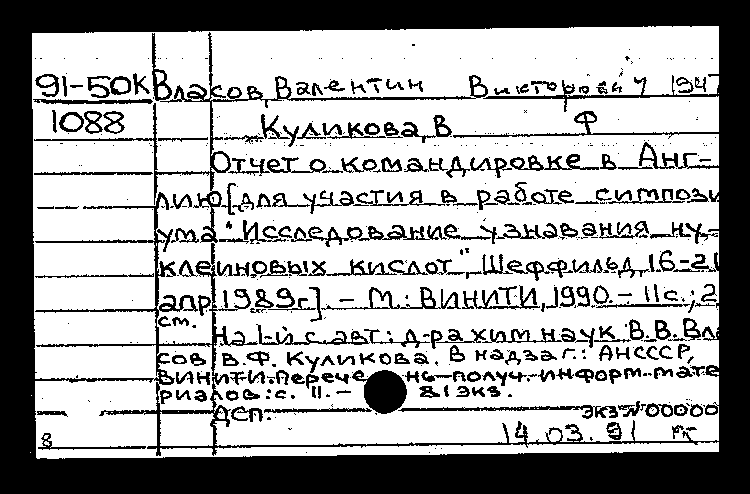 91-50К Власов, Валентин Викторович 1947
1088 Куликова, В Ф
Отчет о командировке в Анг-
лию [для участия в работе симпози
ума "Исследование узнавания ну-
клеиновых кислот", Шеффильд, 16-21
апр. 1989г.]. - М.: ВИНИТИ, 1990. - 11с.; 2
см.
На 1-й с. авт.: д-ра хим. наук В.В. Вла
сов В.Ф. Куликова. В надзаг.: АН СССР,
ВИНИТИ. Перечень получ. информ. мате
риалов: с. 11. - 81 экз.
ДСП. экз N 00000
14.03.91
8